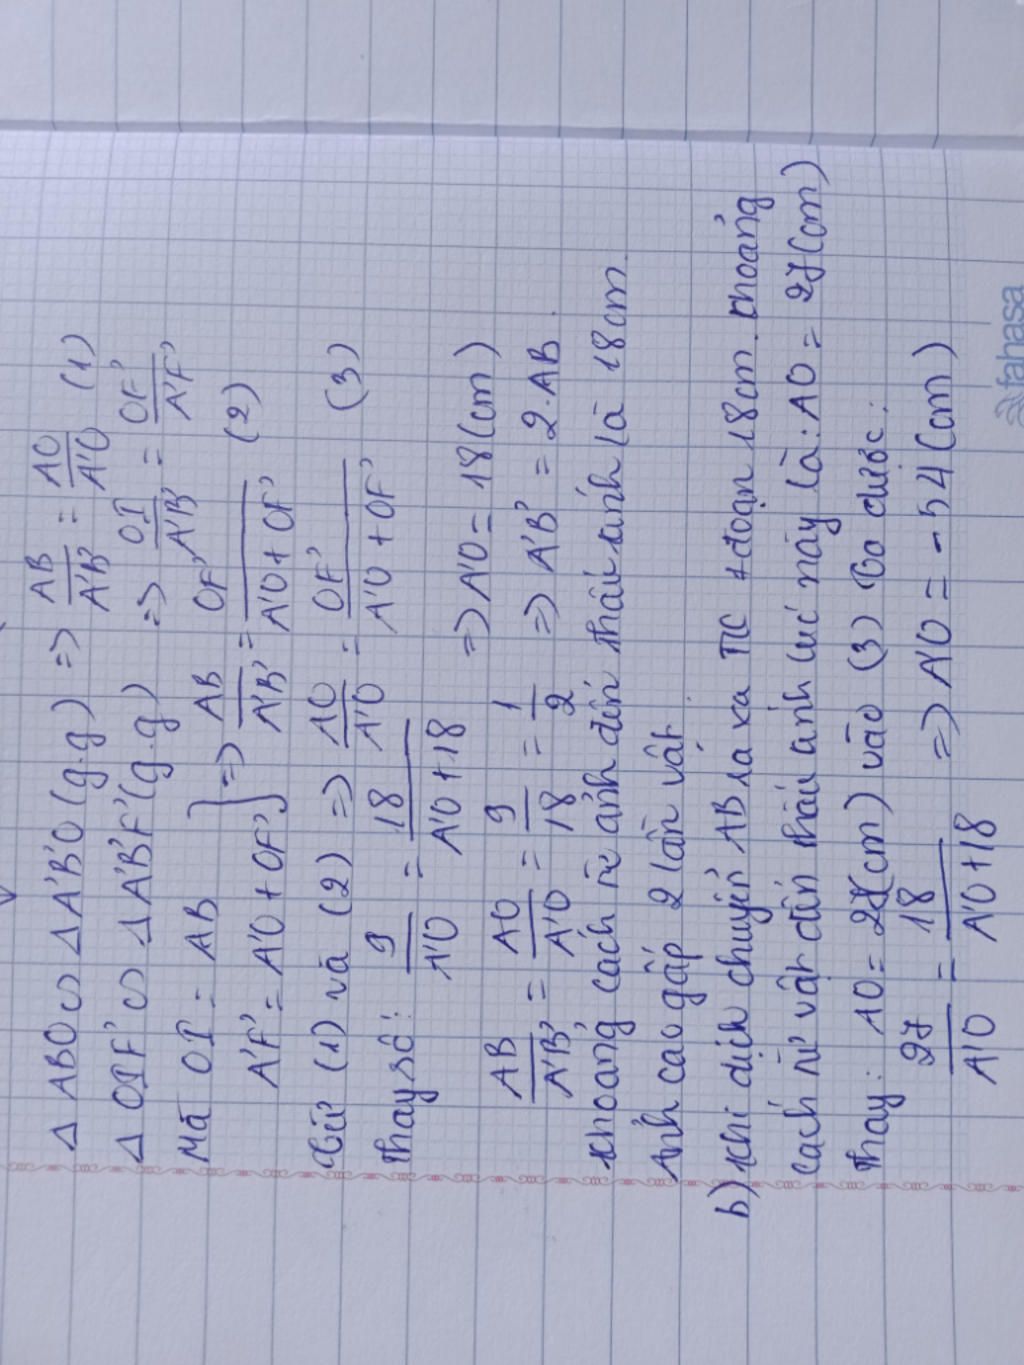 Δ ABO ∽ Δ A'B'O (g.g) => AB/A'B' = AO/A'O (1)
Δ OIF' ∽ Δ A'B'F' (g.g) => OI/A'B' = OF'/A'F'
Mà OI = AB
A'F' = A'O + OF' } => AB/A'B' = OF'/A'O + OF' (2)
Từ (1) và (2) => AO/A'O = OF'/A'O + OF' (3)
Thay số: 9/A'O = 18/A'O + 18 => A'O = 18 (cm)
AB/A'B' = AO/A'O = 9/18 = 1/2 => A'B' = 2.AB.
Khoảng cách từ ảnh đến thấu kính là 18cm.
Ảnh cao gấp 2 lần vật.
b) Khi dịch chuyển AB ra xa TK 1 đoạn 18cm. Khoảng
cách từ vật đến thấu kính lúc này là: AO = 27 (cm)
Thay: AO = 27 (cm) vào (3) ta được:
27/A'O = 18/A'O + 18 => A'O = - 54 (cm)
fahasa